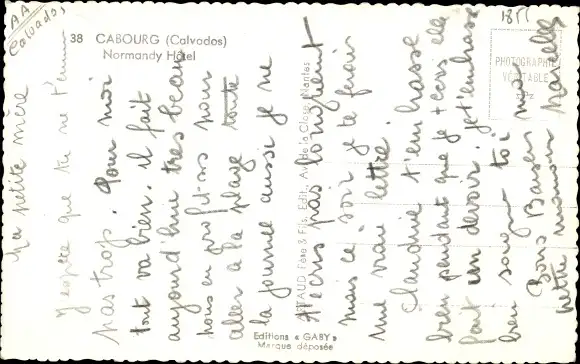 AA
Calvados
1855
38 CABOURG (Calvados)
Normandy Hôtel
PHOTOGRAPHIE
VÉRITABLE
ARTAUD Père & Fils, Edit., Av. de la Close, Nantes
Editions « GABY »
Marque déposée
Ma petite mère
J'espère que tu ne t'ennuies
pas trop. Pour moi
tout va bien. Il fait
aujourd'hui très beau
nous en profitons pour
aller à la plage toute
la journée aussi je ne
t'écris pas longuement
mais ce soir je te ferai
une vraie lettre.
Claudine t'embrasse
bien pendant que je t'écris elle
fait un devoir. je t'embrasse
bien soigne toi
Bons Baisers
petite maman